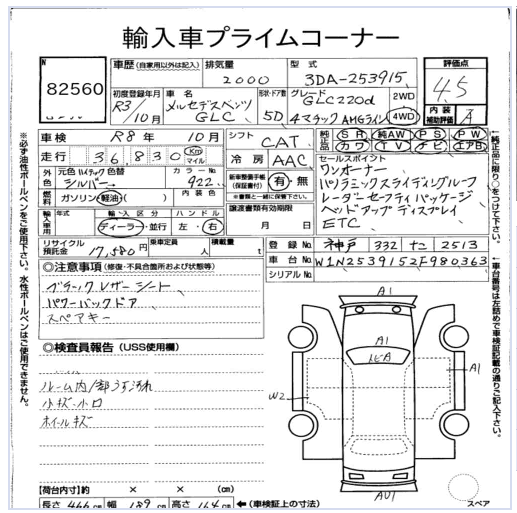 輸入車プライムコーナー
N
82560
車歴(自家用以外は記入)
排気量
2000
型式
3DA-253915
評価点
4.5
初度登録年月
R3/10月
車名
メルセデスベンツ
GLC
形状・ドア数
5D
グレード
GLC220d
4マチック AMGライン
2WD
4WD
内装補助評価
A
車検 R8年 10月
走行 36,830 Km マイル
外色
元色 ハイテック 色替
シルバー
カラーNo
922
燃料
ガソリン・軽油( )
内装色
輸入車用
年式
輸入区分
ディーラー・並行
ハンドル
左・右
リサイクル預託金
17,580円
乗車定員
人
積載量
t
シフト
CAT
冷房
AAC
新車整備手帳(保証書付)
有・無
※書類と一緒に保管下さい。
譲渡書類有効期限
月 日
純正品
SR 純AW PS PW
カワ TV ナビ エアB
セールスポイント
ワンオーナー
パノラミックスライディングルーフ
レーダーセーフティパッケージ
ヘッドアップディスプレイ
ETC
登録No 神戸 332 ナニ 2513
車台No W1N2539152F980363
シリアルNo
◎注意事項(修復・不具合箇所および状態等)
ブラックレザーシート
パワーバックドア
スペアキー
◎検査員報告(USS使用欄)
ルーム内/部うす汚れ
小キズ・小凹
ホイールキズ
A1
A1
A1
W2
AU1
スペア
【荷台内寸】約 × × (cm)
長さ 466cm 幅 189cm 高さ 164cm ←(車検証上の寸法)
※必ず油性ボールペンをご使用下さい。水性ボールペンはご使用できません。
←純正品に限り○をつけて下さい。
←車台番号は左詰めで車検証記載の通りご記入下さい。